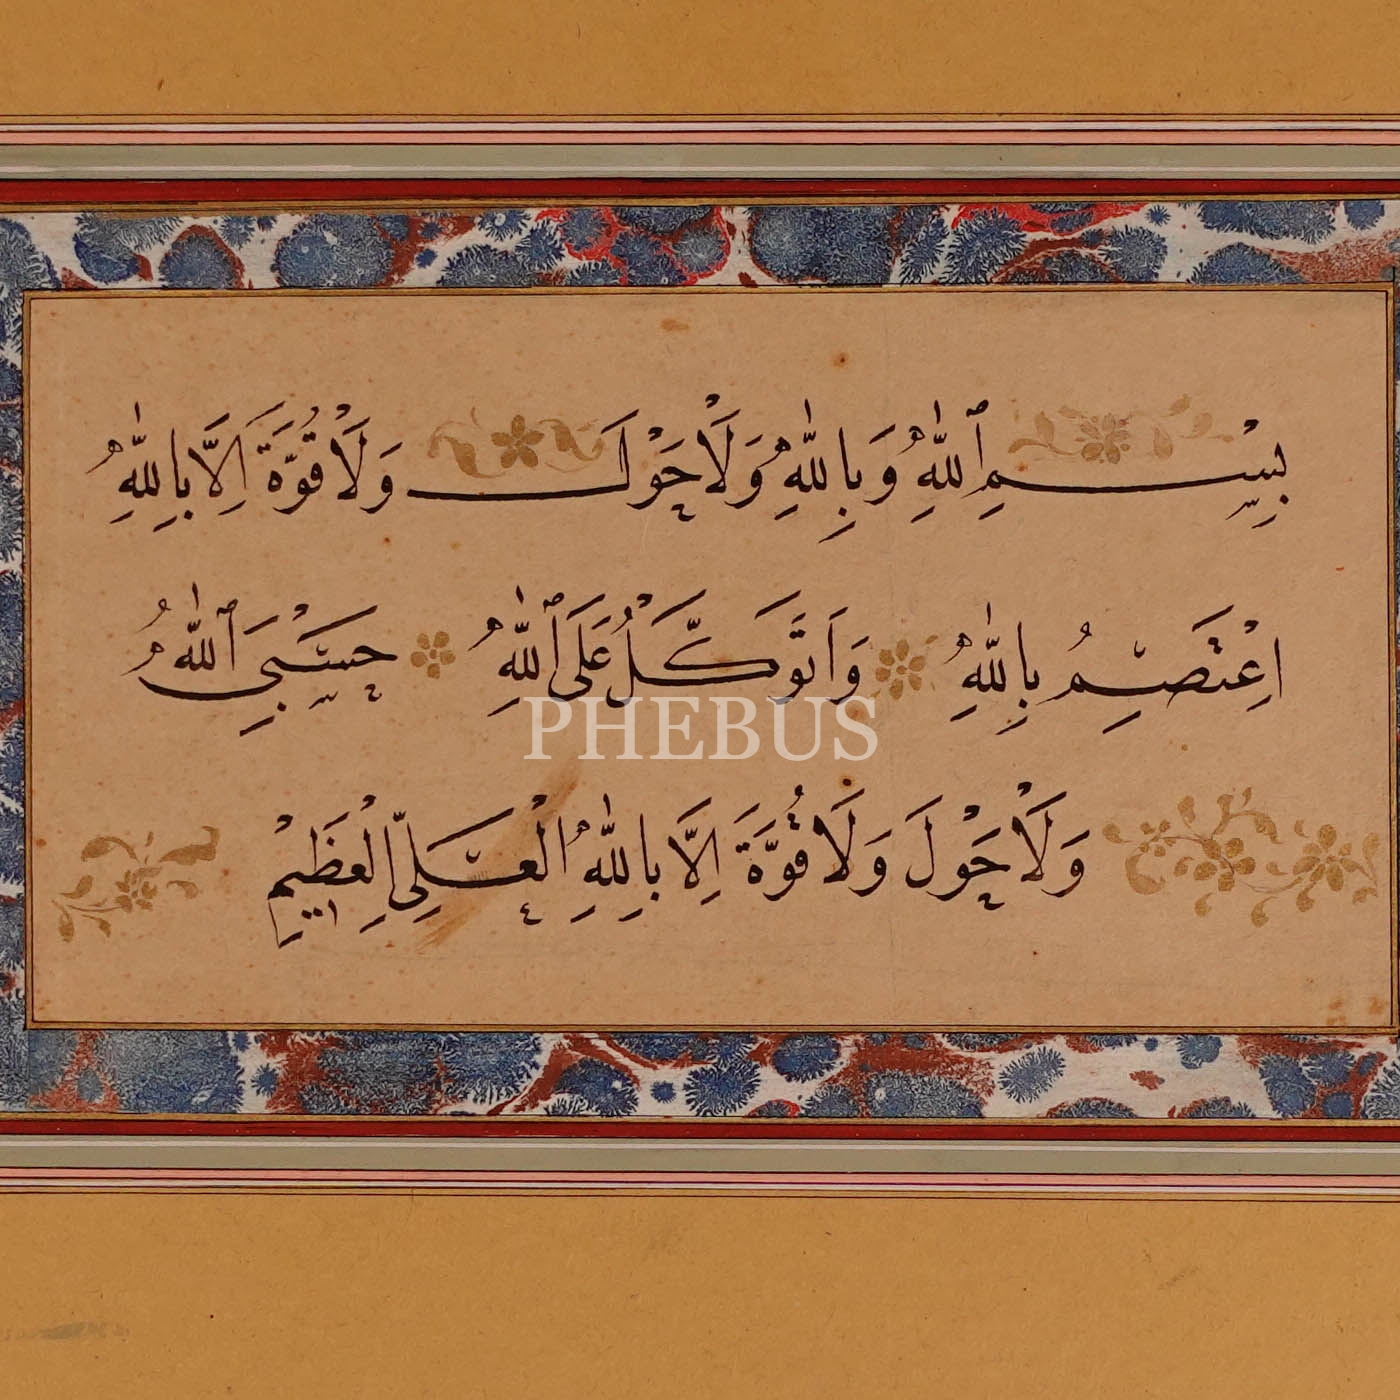 بِسْمِ ٱللّٰهِ وَبِاللّٰهِ وَلَاْحَوْلَ وَلَاْ قُوَّةَ اِلَّا بِاللّٰهِ
اِعْتَصَمِْتُ بِاللّٰهِ وَاَتَوَكَّلُ عَلَى ٱللّٰهِ حَسْبِيَ ٱللّٰهُ
PHEBUS
وَلَاْ حَوْلَ وَلَا قُوَّةَ اِلَّا بِاللّٰهِ الْعَلِيِّ الْعَظِيْمِ